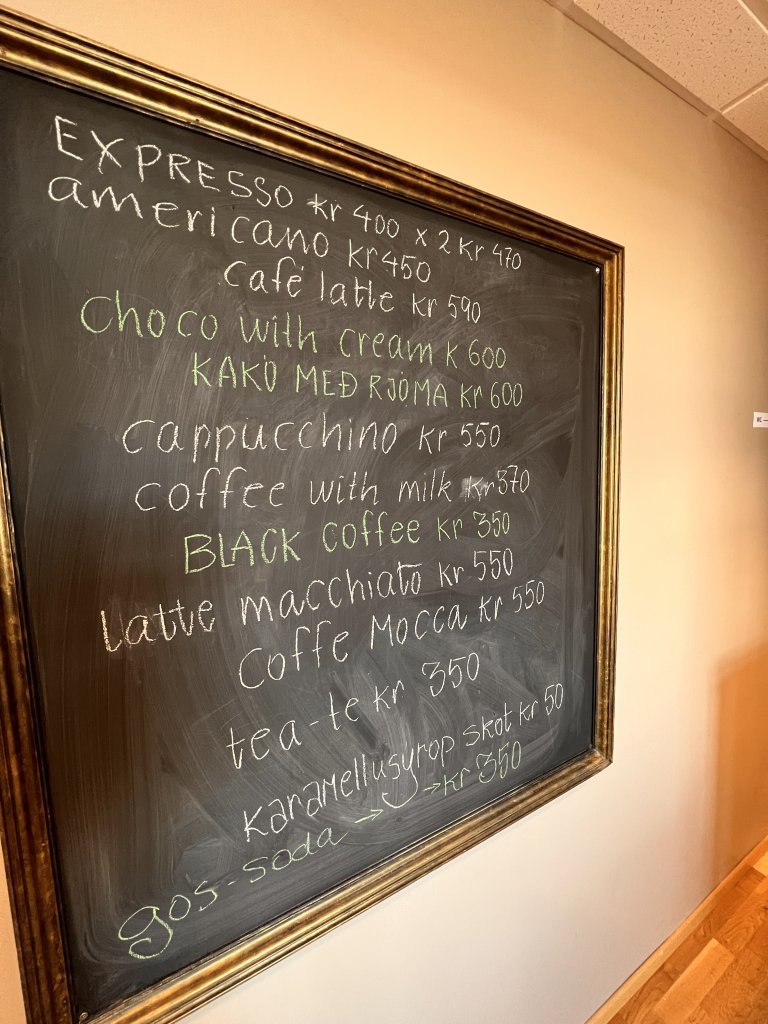 EXPRESSO kr 400 x 2 kr 470
americano kr 450
café latte kr 590
choco with cream k 600
KAKÓ MEÐ RJÓMA kr 600
cappucchino kr 550
coffee with milk kr 370
BLACK coffee kr 350
latte macchiato kr 550
coffe Mocca kr 550
tea-te kr 350
karamellusyrop skot kr 50
gos-soda → → kr 350